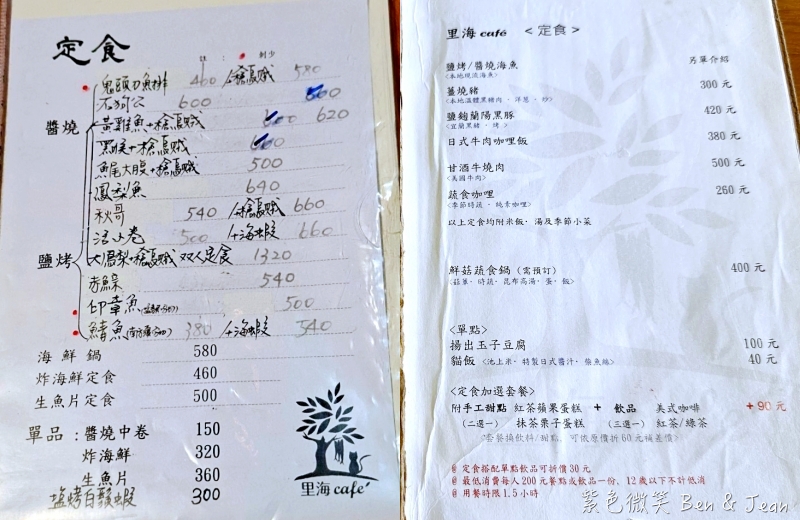 定食
註：● 刺少
鬼頭刀魚排 460 /+槍烏賊 580
石狗公 600
醬燒 黃雞魚+槍烏賊 620
黑喉+槍烏賊
魚尾大腹+槍烏賊 500
鳳梨魚 640
秋哥 540 /+槍烏賊 660
活小卷 500 /+海蝦 660
鹽烤 大鳳梨+槍烏賊 双人定食 1320
赤鯮 540
印章魚 500
鯖魚 380 /+海蝦 540
海鮮鍋 580
炸海鮮定食 460
生魚片定食 500
單品：醬燒中卷 150
炸海鮮 320
生魚片 360
塩烤白鬚蝦 300
里海 café
里海 café <定食>
鹽烤/醬燒海魚 另單介紹
<本地現流海魚>
薑燒豬 300 元
<本地溫體黑豬肉、洋蔥、炒>
鹽麴蘭陽黑豚 420 元
<宜蘭黑豬、烤>
日式牛肉咖哩飯 380 元
甘酒牛燒肉 500 元
<美國牛肉>
蔬食咖哩 260 元
<季節時蔬、純素咖哩>
以上定食均附米飯、湯及季節小菜
鮮菇蔬食鍋 (需預訂) 400 元
<菇菫、時蔬、昆布高湯、蛋、飯>
<單點>
揚出玉子豆腐 100 元
貓飯 <池上米、特製日式醬汁、柴魚絲> 40 元
<定食加選套餐>
附手工甜點 紅茶蘋果蛋糕 + 飲品 美式咖啡 +90 元
(二選一) 抹茶栗子蛋糕 (三選一) 紅茶/綠茶
<套餐換飲料/甜點，可依原價折60元補差價>
@ 定食搭配單點飲品可折價30元
@ 最低消費每人200元餐點或飲品一份，12歲以下不計低消
@ 用餐時限1.5小時
紫色微笑 Ben & Jean